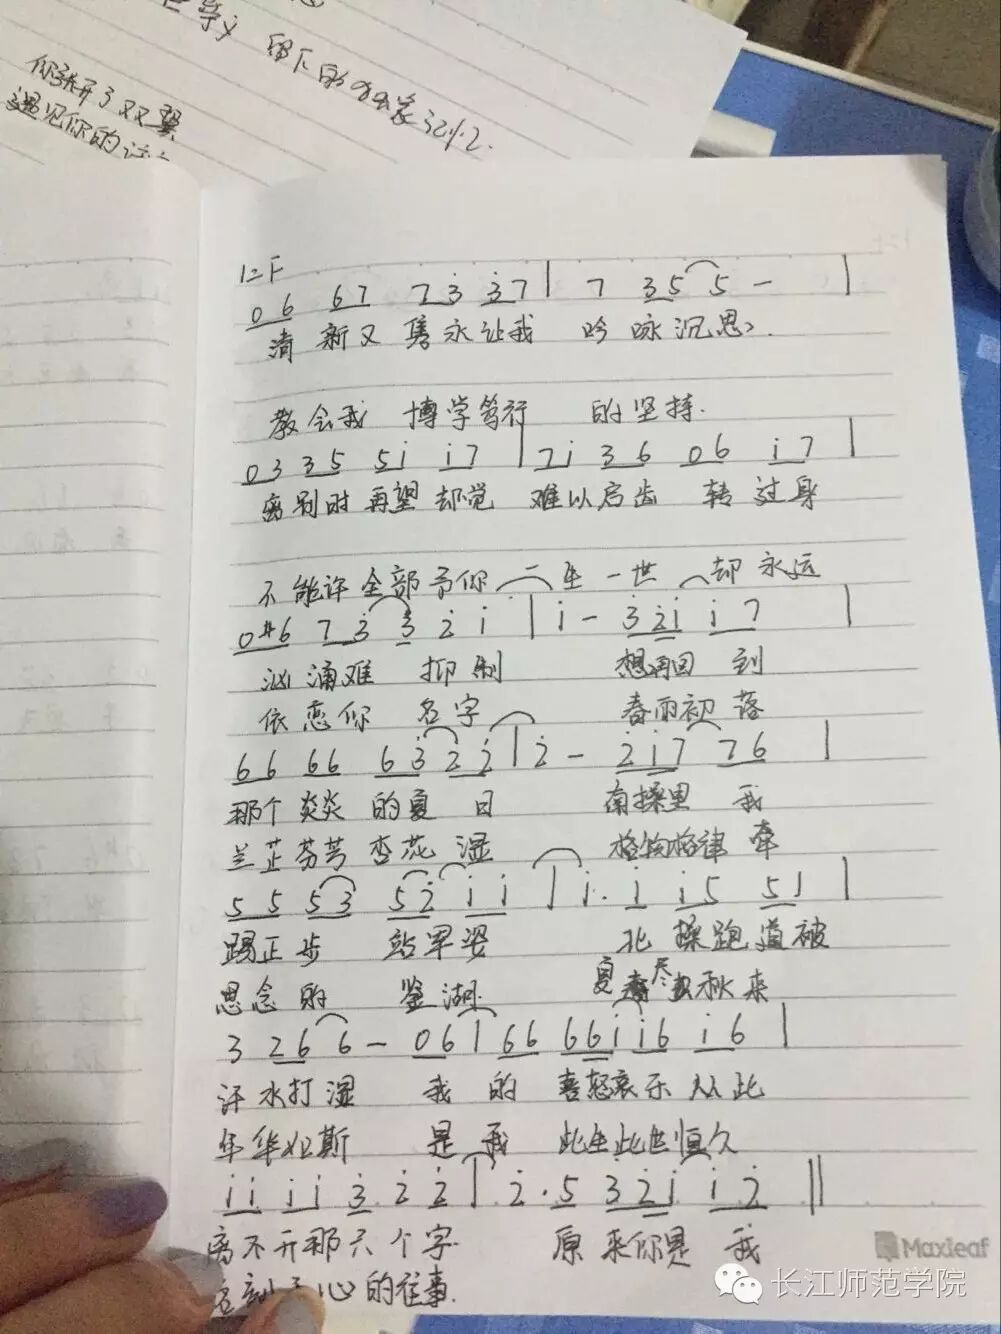 留下的
你张开了双翼
遇见你的
1=F
0 6 6 7 7 3̇ 3̇ 7 | 7 3 5 5 — |
清新又隽永让我 吟咏沉思
教会我 博学笃行 的坚持.
0 3 3 5 5 i i 7 | 7 i 3 6 0 6 i 7 |
离别时再望却觉 难以启齿 转过身
不能许全部予你 一生一世 却永远
0 #6 7 3̇ 3̇ 2̇ i | i — 3̇ 2̇ i i 7 |
汹涌难 抑制 想再回到
依恋你 名字 春雨初落
6 6 6 6 6 3̇ 2̇ 2̇ | 2̇ — 2̇ i 7 7 6 |
那个炎炎的夏日 南操里 我
兰芷芬芳杏花湿 格物格律 牵
5 5 5 3 5 2̇ i i | i. i i 5 5 1 |
踢正步 站军姿 北操跑道被
思念的 鉴湖 夏尽秋来
3 2 6 6 — 0 6 | 6 6 6 6 i i 6 i 6 |
汗水打湿 我的 喜怒哀乐从此
年华如斯 是我 此生此世恒久
i i i i 3̇ 2̇ 2̇ | 2̇. 5 3 2̇ i i 2̇ ||
离不开那六个字 原来你是我
刻于心的往事.
Maxleaf
长江师范学院